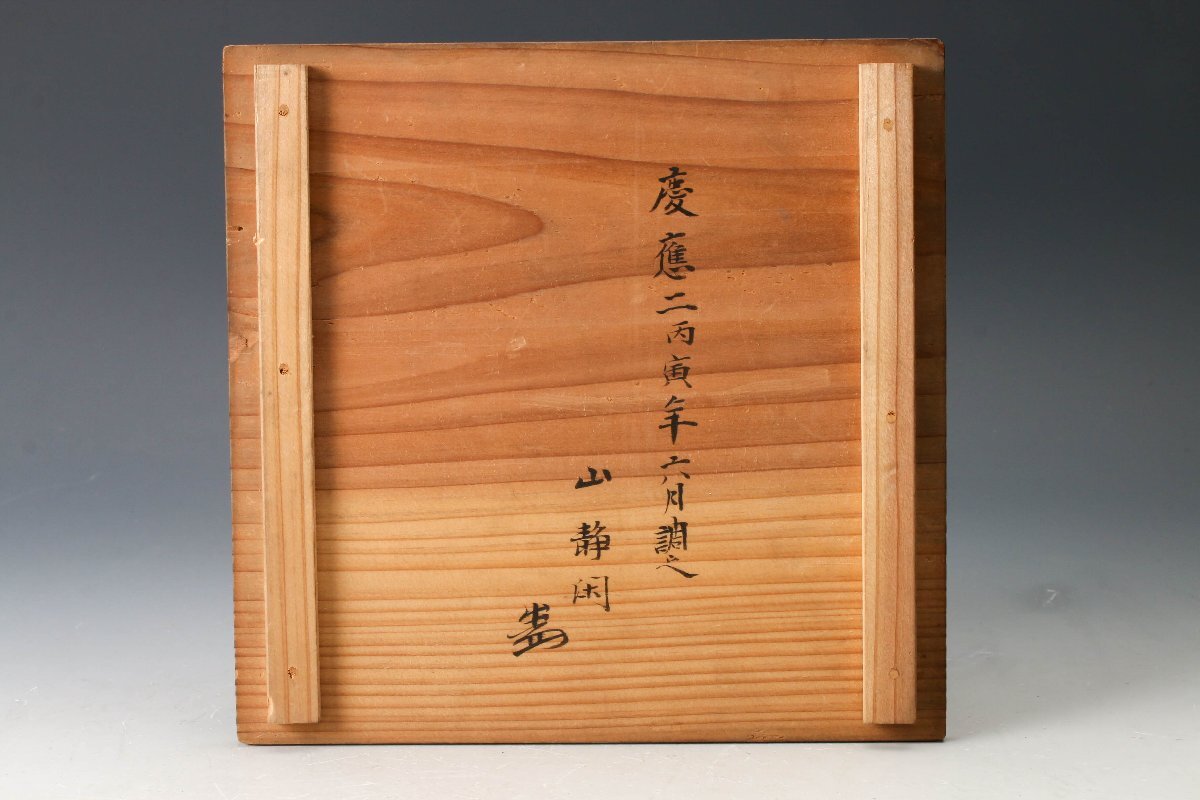 慶應二丙寅年六月調之
山静閑